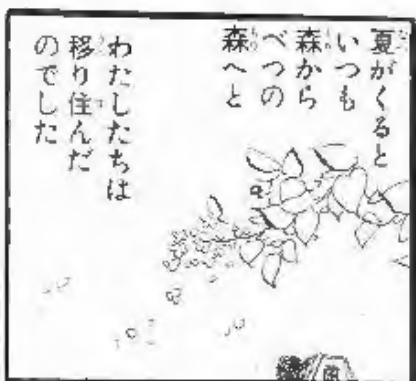 夏がくると
いつも
森から
べつの
森へと
わたしたちは
移り住んだ
のでした